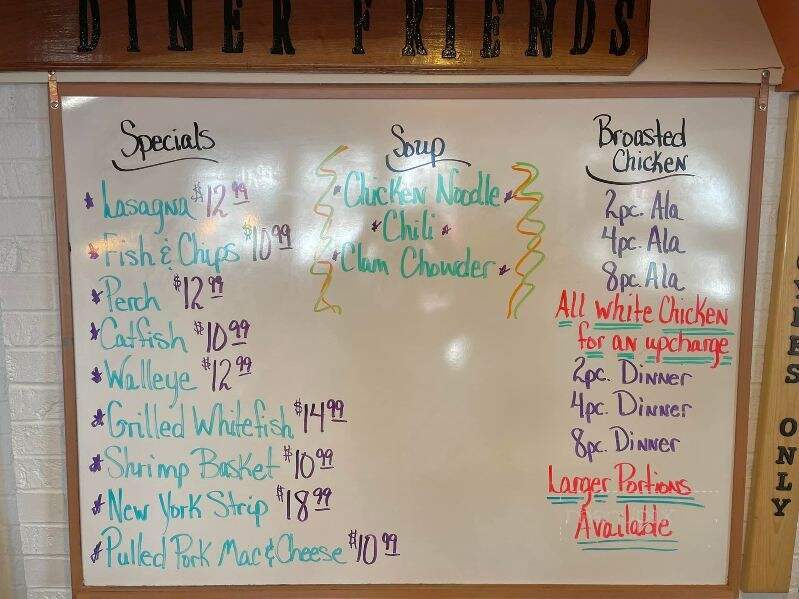 DINER FRIENDS
Specials
* Lasagna $12.99
* Fish & Chips $10.99
* Perch $12.99
* Catfish $10.99
* Walleye $12.99
* Grilled Whitefish $14.99
* Shrimp Basket $10.99
* New York Strip $18.99
* Pulled Pork Mac & Cheese $10.99
Soup
* Chicken Noodle *
* Chili *
* Clam Chowder *
Broasted
Chicken
2pc. Ala
4pc. Ala
8pc. Ala
All White Chicken
for an upcharge
2pc. Dinner
4pc. Dinner
8pc. Dinner
Larger Portions
Available
ONLY